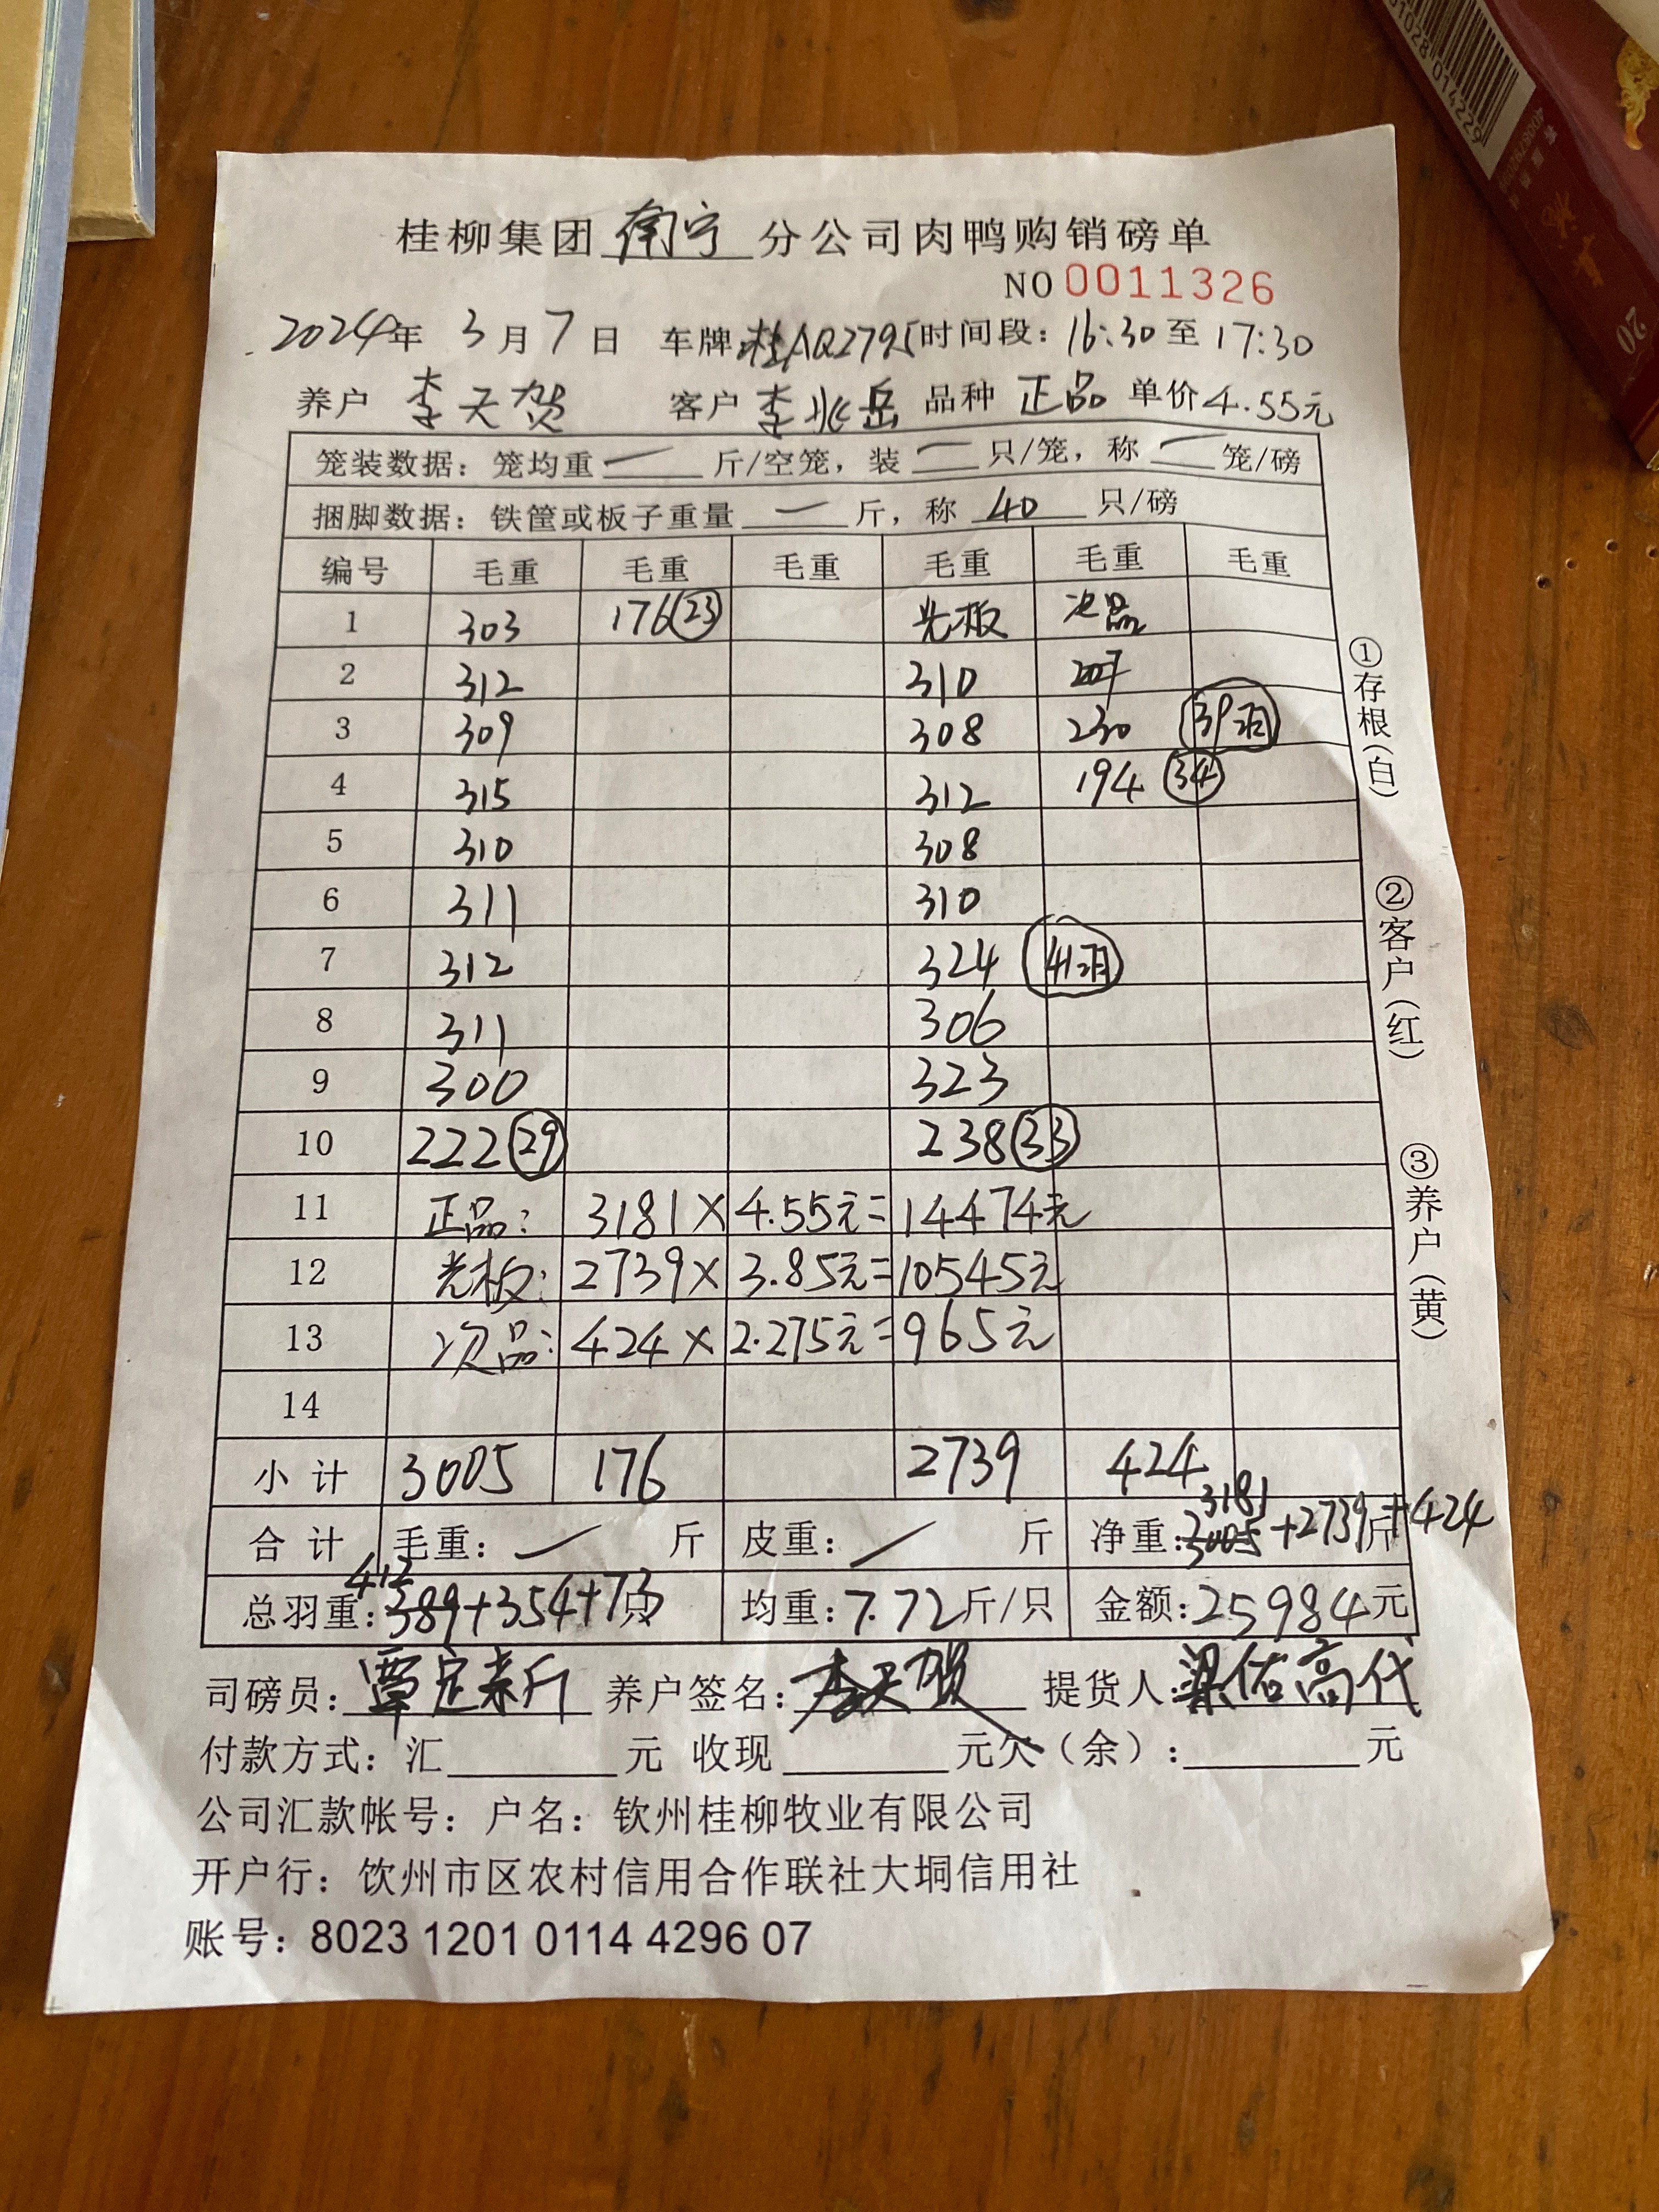 桂柳集团 南宁 分公司肉鸭购销磅单
NO 0011326
2024年 3月7日 车牌:桂AQ2795 时间段: 16:30 至 17:30
养户 李天贺 客户 李兆岳 品种 正品 单价 4.55元
笼装数据: 笼均重 — 斤/空笼, 装 — 只/笼, 称 — 笼/磅
捆脚数据: 铁筐或板子重量 — 斤, 称 40 只/磅
编号 毛重 毛重 毛重 毛重 毛重 毛重
1 303 176 (23) 光板 次品
2 312 310
3 309 308 230 (39羽)
4 315 312 194 (34)
5 310 308
6 311 310
7 312 324 (41羽)
8 311 306
9 300 323
10 222 (29) 238 (33)
11 正品: 3181 × 4.55元 = 14474元
12 光板: 2739 × 3.85元 = 10545元
13 次品: 424 × 2.275元 = 965元
14
小计 3005 176 2739 424
合计 毛重: / 斤 皮重: / 斤 净重: 3005 3181 +2739斤+424
总羽重: 389 412 +354+73只 均重: 7.72斤/只 金额: 25984元
司磅员: 覃定来斤 养户签名: 李天贺 提货人: 梁佑高代
付款方式: 汇 元 收现 元欠(余): 元
公司汇款帐号: 户名: 钦州桂柳牧业有限公司
开户行: 饮州市区农村信用合作联社大垌信用社
账号: 8023 1201 0114 4296 07
①存根(白)
②客户(红)
③养户(黄)